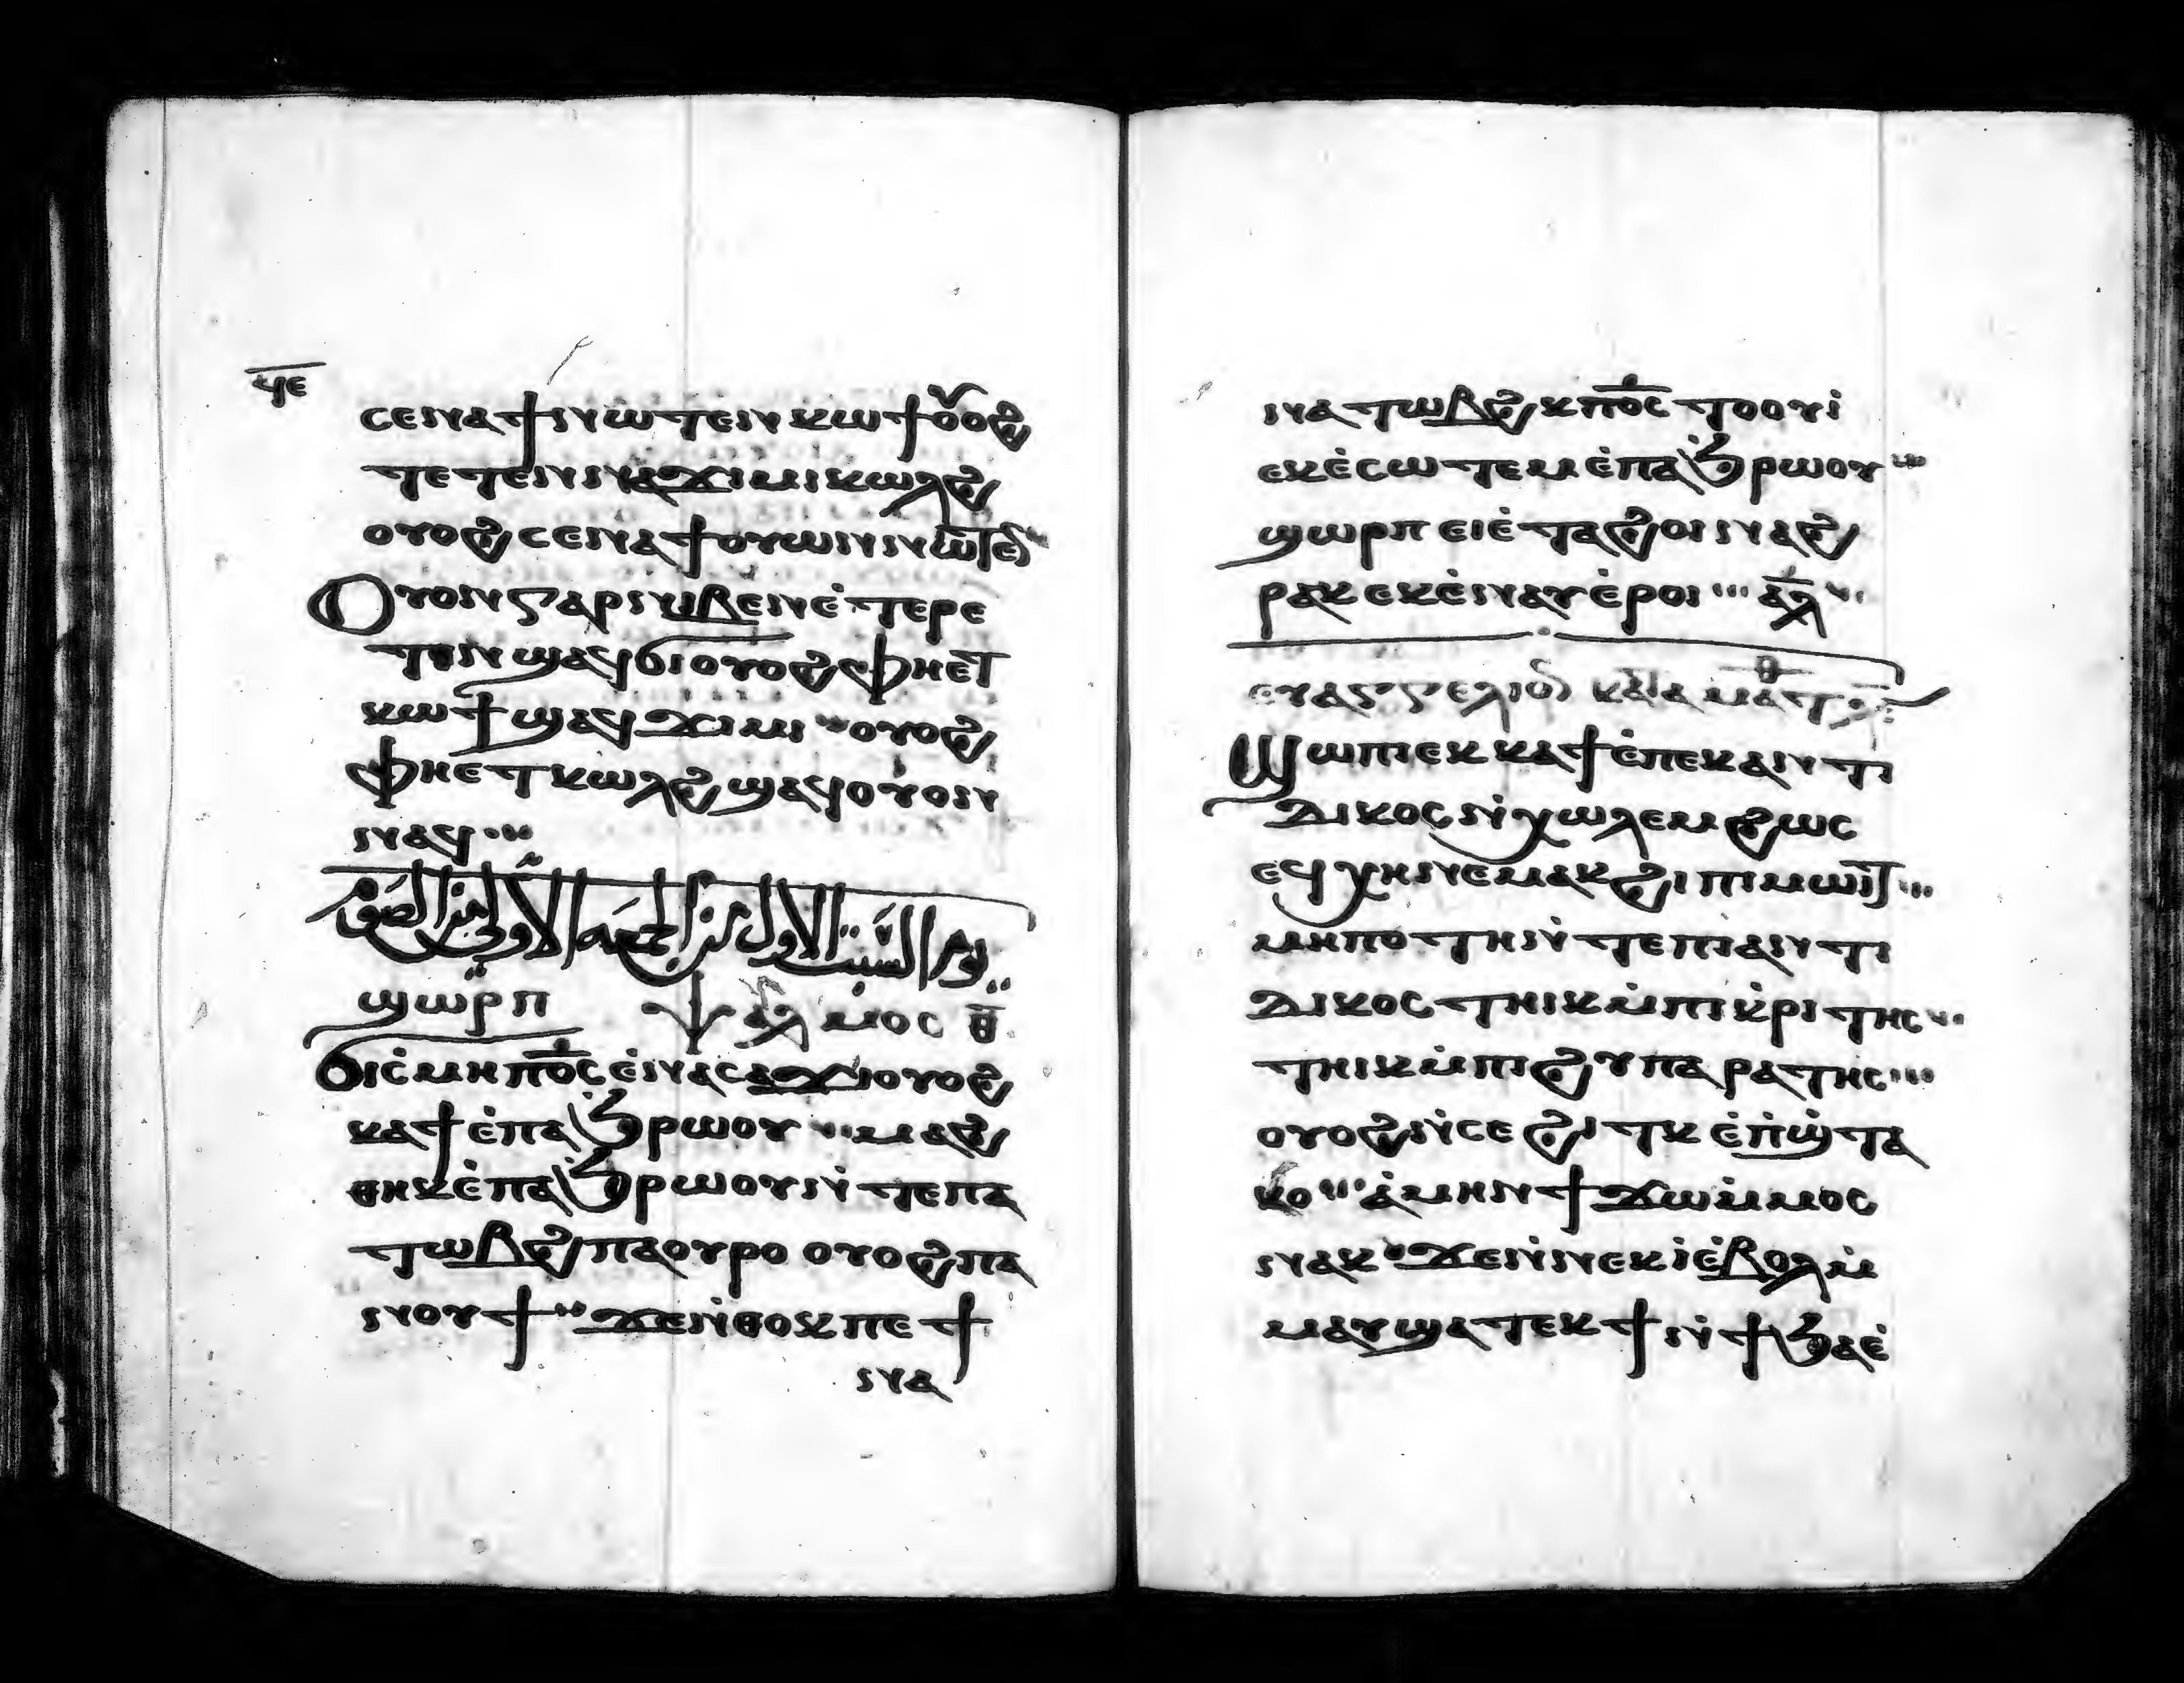 ϥⲉ
ⲥⲉⲛⲁϯⲛⲱⲧⲉⲛ ⲕⲱϯ ⲟⲩⲟϩ
ⲧⲉⲧⲉⲛⲛⲁϫⲓⲙⲓ ⲕⲱⲗϩ
ⲟⲩⲟϩ ⲥⲉⲛⲁϯⲟⲩⲱⲛ ⲛⲱⲧⲉⲛ
Ⲟⲩⲟⲛ ⲅⲁⲣ ⲛⲓⲃⲉⲛ ⲉ̇ⲧⲉⲣⲉ
ⲧⲓⲛ ϣⲁϥϭⲓ ⲟⲩⲟϩ ⲫⲏⲉⲧ
ⲕⲱϯ ϣⲁϥϫⲓⲙⲓ ⲟⲩⲟϩ
ⲫⲏⲉⲧⲕⲱⲗϩ ϣⲁϥⲟⲩⲟⲛ
ⲛⲁϥ
يوم السبت الاول من الجمعه الاولى من الصوم
ϣⲱⲣⲡ ⲯⲁⲗⲙⲟⲥ ⲉ̅
Ϭⲓⲥ̇ⲙⲏ ⲡ̅ⲟ̅ⲥ̅ ⲉ̇ⲛⲁⲥⲁϫⲓ ⲟⲩⲟϩ
ⲕⲁϯ ⲉ̇ⲡⲁϧⲣⲱⲟⲩ ⲙⲁϩ
ⲑⲏⲕ ⲉ̇ⲡⲁϧⲣⲱⲟⲩ ⲛ̇ⲧⲉ ⲡⲁ
ⲧⲱⲃϩ ⲡⲁⲟⲩⲣⲟ ⲟⲩⲟϩ ⲡⲁ
ⲛⲟⲩϯ ϫⲉ ⲛ̇ⲑⲟⲕ ⲡⲉ ϯ
ⲛⲁ
ⲛⲁⲧⲱⲃϩⲕ ⲡ̅ⲟ̅ⲥ̅ ⲧⲟⲟⲩⲓ̇
ⲉⲕⲉ̇ⲥⲱⲧⲉⲙ ⲉ̇ⲡⲁϧⲣⲱⲟⲩ
ϣⲱⲣⲡ ⲉⲓⲉ̇ⲧⲁϩⲟⲓ ⲛⲁϩ
ⲣⲁⲕ ⲉⲕⲉ̇ⲛⲁⲩ ⲉ̇ⲣⲟⲓ ⲁ̅ⲗ̅
ⲉⲩⲁⲅⲅⲉⲗⲓⲟⲛ ⲕⲁⲧⲁ ⲙⲁⲧⲑ
Ϣⲱⲡⲓ ⲉⲕⲕⲁϯ ⲉ̇ⲡⲉⲕⲁⲛⲧⲓ
ⲇⲓⲕⲟⲥ ⲛ̇ⲭⲱⲗⲉⲙ ϩⲱⲥ
ⲉϥⲭⲏ ⲛⲉⲙⲁⲕ ϩⲓ ⲡⲓⲙⲱⲓⲧ
ⲙⲏⲡⲟⲧⲏ ⲛ̇ⲧⲉ ⲡⲓⲁⲛⲧⲓ
ⲇⲓⲕⲟⲥ ⲧⲏⲓⲕ ⲙ̇ⲡⲓⲕ̇ⲣⲓⲧⲏⲥ
ⲧⲏⲓⲕ ⲙ̇ⲡⲓϩⲩⲡⲁⲣⲁⲧⲏⲥ
ⲟⲩⲟϩ ⲛ̇ⲥⲉϩⲓⲧⲕ ⲉ̇ⲡ̇ϣ̇ⲧⲁ
ⲕⲟ ⲁ̇ⲙⲏⲛ ϯϫⲱ ⲙ̇ⲙⲟⲥ
ⲛⲁⲕ ϫⲉ ⲛ̇ⲛⲉⲕⲓ̇ ⲉ̇ⲃⲟⲗ ⲙ̇
ⲙⲁⲩ ϣⲁⲧⲉⲕϯ ⲛ̇ϯϧⲁⲉ̇